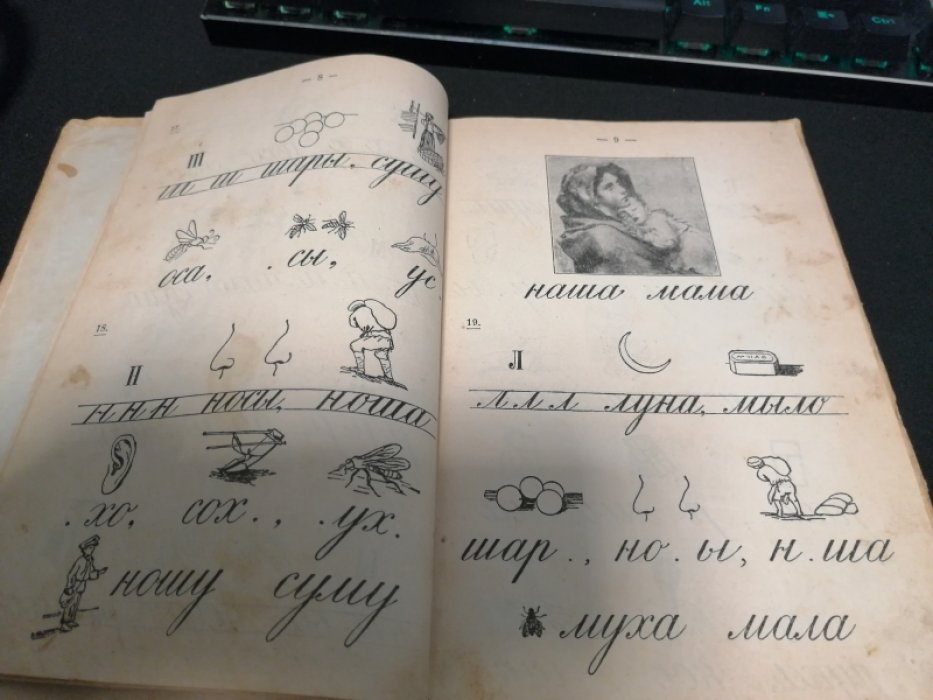 Alt Fn Ctrl
— 8 —
17.
ш
ш ш шары, сушу
оса, . сы, ус
18.
Н
н н н носы, ноша
. хо, сох . , . ух.
ношу суму
— 9 —
наша мама
19.
Л
МЫЛО
л л л луна, мыло
шар . , но . ы, н . ша
муха мала